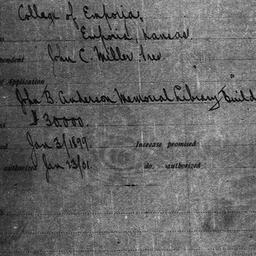 College of Emporia,
Emporia, Kansas
pondent John C. Miller Trea
Application
John B. Anderson Memorial Library Build
$30000.
Jan 3/1899. Increase promised
authorized Jan 13/01. do. authorized